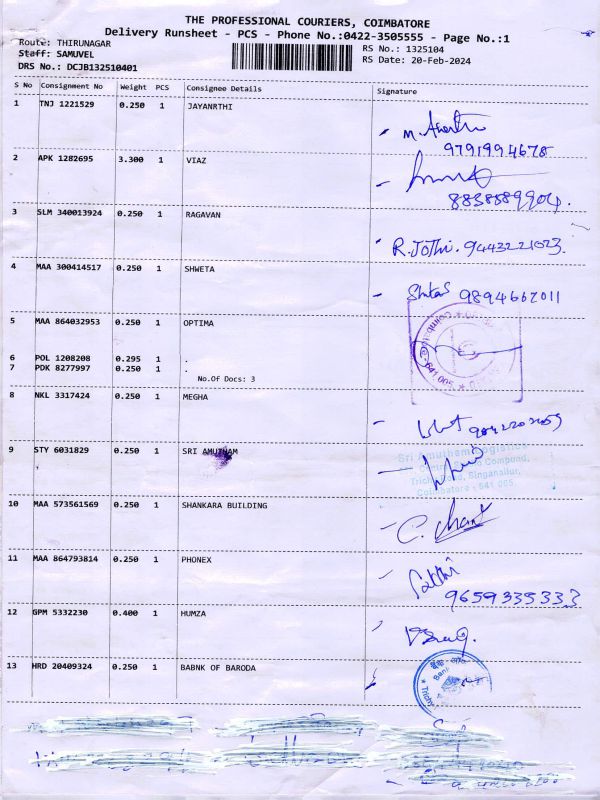 THE PROFESSIONAL COURIERS, COIMBATORE
Delivery Runsheet - PCS - Phone No.:0422-3505555 - Page No.:1
Route: THIRUNAGAR
RS No.: 1325104
Staff: SAMUVEL
RS Date: 20-Feb-2024
DRS No.: DCJB132510401
S No Consignment No Weight PCS Consignee Details Signature
1 TNJ 1221529 0.250 1 JAYANRTHI
9791994678
2 APK 1282695 3.300 1 VIAZ
8838589904.
3 SLM 340013924 0.250 1 RAGAVAN
R. JOTHI. 9443221023.
4 MAA 300414517 0.250 1 SHWETA
9894662011
5 MAA 864032953 0.250 1 OPTIMA
Coimbatore - 641 005
6 POL 1208208 0.295 1 .
7 PDK 8277997 0.250 1 .
No.Of Docs: 3
8 NKL 3317424 0.250 1 MEGHA
9 STY 6031829 0.250 1 SRI AMUTHAM
Sri Amutham Logistics
Compund,
Trichy Road, Singanallur,
Coimbatore - 641 005.
10 MAA 573561569 0.250 1 SHANKARA BUILDING
11 MAA 864793814 0.250 1 PHONEX
9659335333
12 GPM 5332230 0.400 1 HUMZA
13 HRD 20409324 0.250 1 BABNK OF BARODA